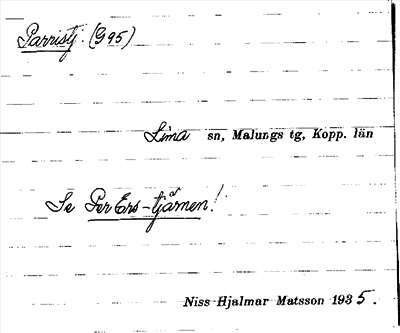 Parristj. (995)
Lima sn, Malungs tg, Kopp. län
Se Per Ers-tjärnen!
Niss Hjalmar Matsson 1935.